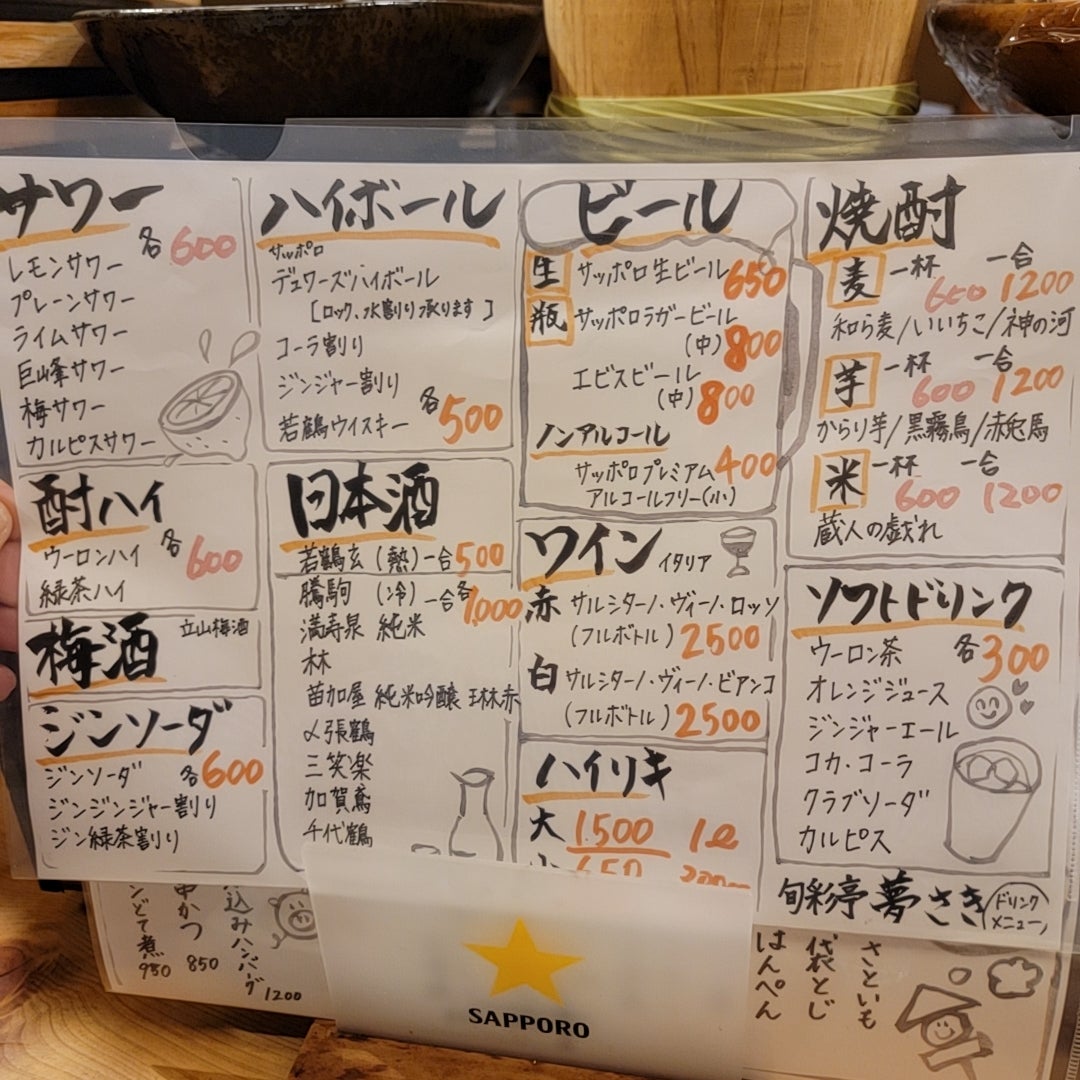 サワー
各600
レモンサワー
プレーンサワー
ライムサワー
巨峰サワー
梅サワー
カルピスサワー
酎ハイ
各600
ウーロンハイ
緑茶ハイ
梅酒
立山梅酒
ジンソーダ
ジンソーダ 各600
ジンジンジャー割り
ジン緑茶割り
ハイボール
サッポロ
デュワーズハイボール
[ロック、水割り承ります]
コーラ割り
ジンジャー割り
若鶴ウイスキー 各500
日本酒
若鶴玄(熱)一合500
騰駒(冷)一合各1,000
満寿泉 純米
林
苗加屋 純米吟醸 琳赤
〆張鶴
三笑楽
加賀鳶
千代鶴
ビール
生 サッポロ生ビール 650
瓶 サッポロラガービール
(中) 800
エビスビール
(中) 800
ノンアルコール
サッポロプレミアム 400
アルコールフリー(小)
ワイン イタリア
赤 サルシターノ・ヴィーノ・ロッソ
(フルボトル) 2500
白 サルシターノ・ヴィーノ・ビアンコ
(フルボトル) 2500
ハイリキ
大 1.500 1ℓ
650
焼酎
麦 一杯 600 一合 1200
和ら麦/いいちこ/神の河
芋 一杯 600 一合 1200
からり芋/黒霧島/赤兎馬
米 一杯 600 一合 1200
蔵人の戯れ
ソフトドリンク
ウーロン茶 各300
オレンジジュース
ジンジャーエール
コカ・コーラ
クラブソーダ
カルピス
旬彩亭 夢さき
ドリンク
メニュー
込みハンバーグ 1200
串かつ 850
どて煮 950
SAPPORO
さといも
袋とじ
はんぺん